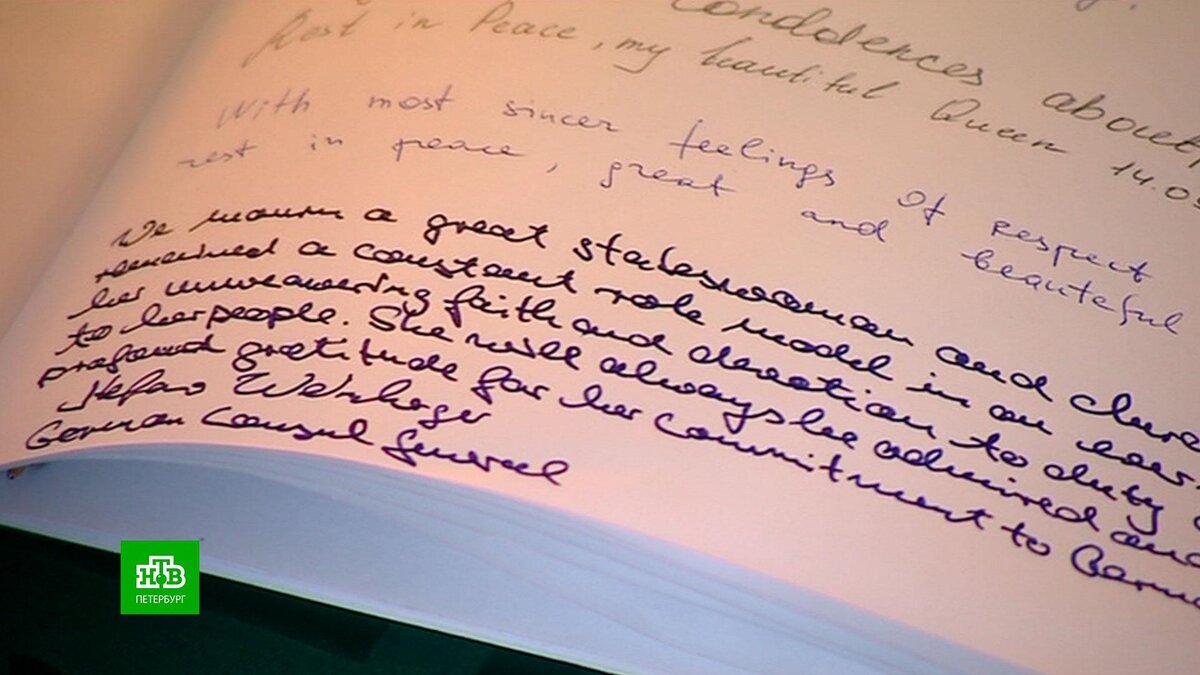 condolences about
Rest in Peace, my beautiful Queen 14.09
With most sincer feelings of respect
rest in peace, great and beauteful
We mourn a great stateswoman and
remained a constant role model in an
her unwavering faith and devotion to duty
to her people. She will always be admired and
profound gratitude for her commitment to
Stefano Weinberger
German Consul General
НТВ
ПЕТЕРБУРГ